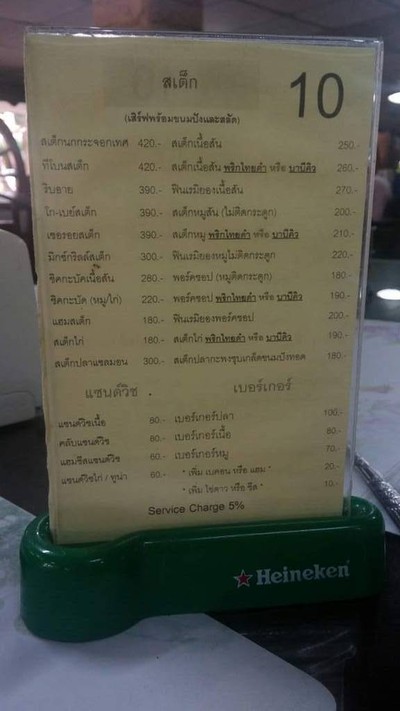 สเต็ก
10
(เสิร์ฟพร้อมขนมปังและสลัด)
สเต็กนกกระจอกเทศ 420.- สเต็กเนื้อสัน 250.-
ทีโบนสเต็ก 420.- สเต็กเนื้อสัน พริกไทยดำ หรือ บานีคิว 260.-
ริบอาย 390.- ฟินเรมิยองเนื้อสัน 270.-
โก-เบย์สเต็ก 390.- สเต็กหมูสัน (ไม่ติดกระดูก) 200.-
เซอรอยสเต็ก 390.- สเต็กหมู พริกไทยดำ หรือ บานีคิว 210.-
มิกซ์กริลล์สเต็ก 300.- ฟินเรมิยองหมูไม่ติดกระดูก 220.-
ชิคกะบัคเนื้อสัน 280.- พอร์คชอป (หมูติดกระดูก) 180.-
ชิคกะบัค (หมู/ไก่) 220.- พอร์คชอป พริกไทยดำ หรือ บานีคิว 190.-
แฮมสเต็ก 180.- ฟินเรมิยองพอร์คชอป 200.-
สเต็กไก่ 160.- สเต็กไก่ พริกไทยดำ หรือ บานีคิว 190.-
สเต็กปลาแซลมอน 300.- สเต็กปลากะพงชุบเกล็ดขนมปังทอด 180.-
แซนด์วิช เบอร์เกอร์
แซนด์วิชเนื้อ 80.- เบอร์เกอร์ปลา 100.-
คลับแซนด์วิช 80.- เบอร์เกอร์เนื้อ 80.-
แฮมชีสแซนด์วิช 60.- เบอร์เกอร์หมู 70.-
แซนด์วิชไก่ / ทูน่า 60.- * เพิ่ม เบคอน หรือ แฮม * 20.-
* เพิ่ม ไข่ดาว หรือ ชีส * 10.-
Service Charge 5%
Heineken